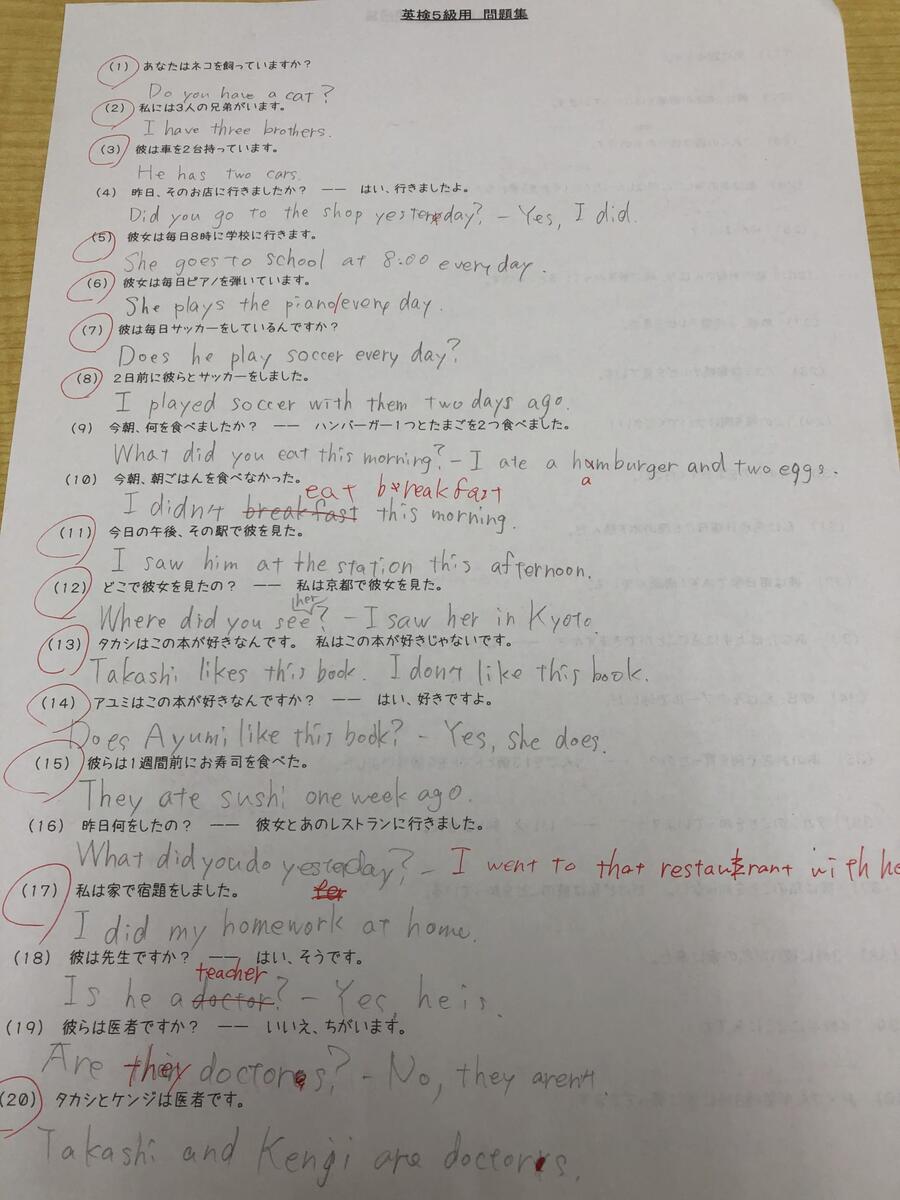 英検5級用 問題集
(1) あなたはネコを飼っていますか?
Do you have a cat?
(2) 私には3人の兄弟がいます。
I have three brothers.
(3) 彼は車を2台持っています。
He has two cars.
(4) 昨日、そのお店に行きましたか? ―― はい、行きましたよ。
Did you go to the shop yesterday? - Yes, I did.
(5) 彼女は毎日8時に学校に行きます。
She goes to school at 8:00 every day.
(6) 彼女は毎日ピアノを弾いています。
She plays the piano/every day.
(7) 彼は毎日サッカーをしているんですか?
Does he play soccer every day?
(8) 2日前に彼らとサッカーをしました。
I played soccer with them two days ago.
(9) 今朝、何を食べましたか? ―― ハンバーガー1つとたまごを2つ食べました。
What did you eat this morning? - I ate a hamburger and two eggs.
a
(10) 今朝、朝ごはんを食べなかった。
eat breakfast
I didn't breakfast this morning.
(11) 今日の午後、その駅で彼を見た。
I saw him at the station this afternoon.
(12) どこで彼女を見たの? ―― 私は京都で彼女を見た。
her
Where did you see? - I saw her in Kyoto.
(13) タカシはこの本が好きなんです。 私はこの本が好きじゃないです。
Takashi likes this book. I don't like this book.
(14) アユミはこの本が好きなんですか? ―― はい、好きですよ。
Does Ayumi like this book? - Yes, she does.
(15) 彼らは1週間前にお寿司を食べた。
They ate sushi one week ago.
(16) 昨日何をしたの? ―― 彼女とあのレストランに行きました。
What did you do yesterday? - I went to that restaurant with he
(17) 私は家で宿題をしました。
I did my homework at home.
(18) 彼は先生ですか? ―― はい、そうです。
teacher
Is he a doctor? - Yes, he is.
(19) 彼らは医者ですか? ―― いいえ、ちがいます。
Are they doctors? - No, they aren't
(20) タカシとケンジは医者です。
Takashi and Kengi are doctors.